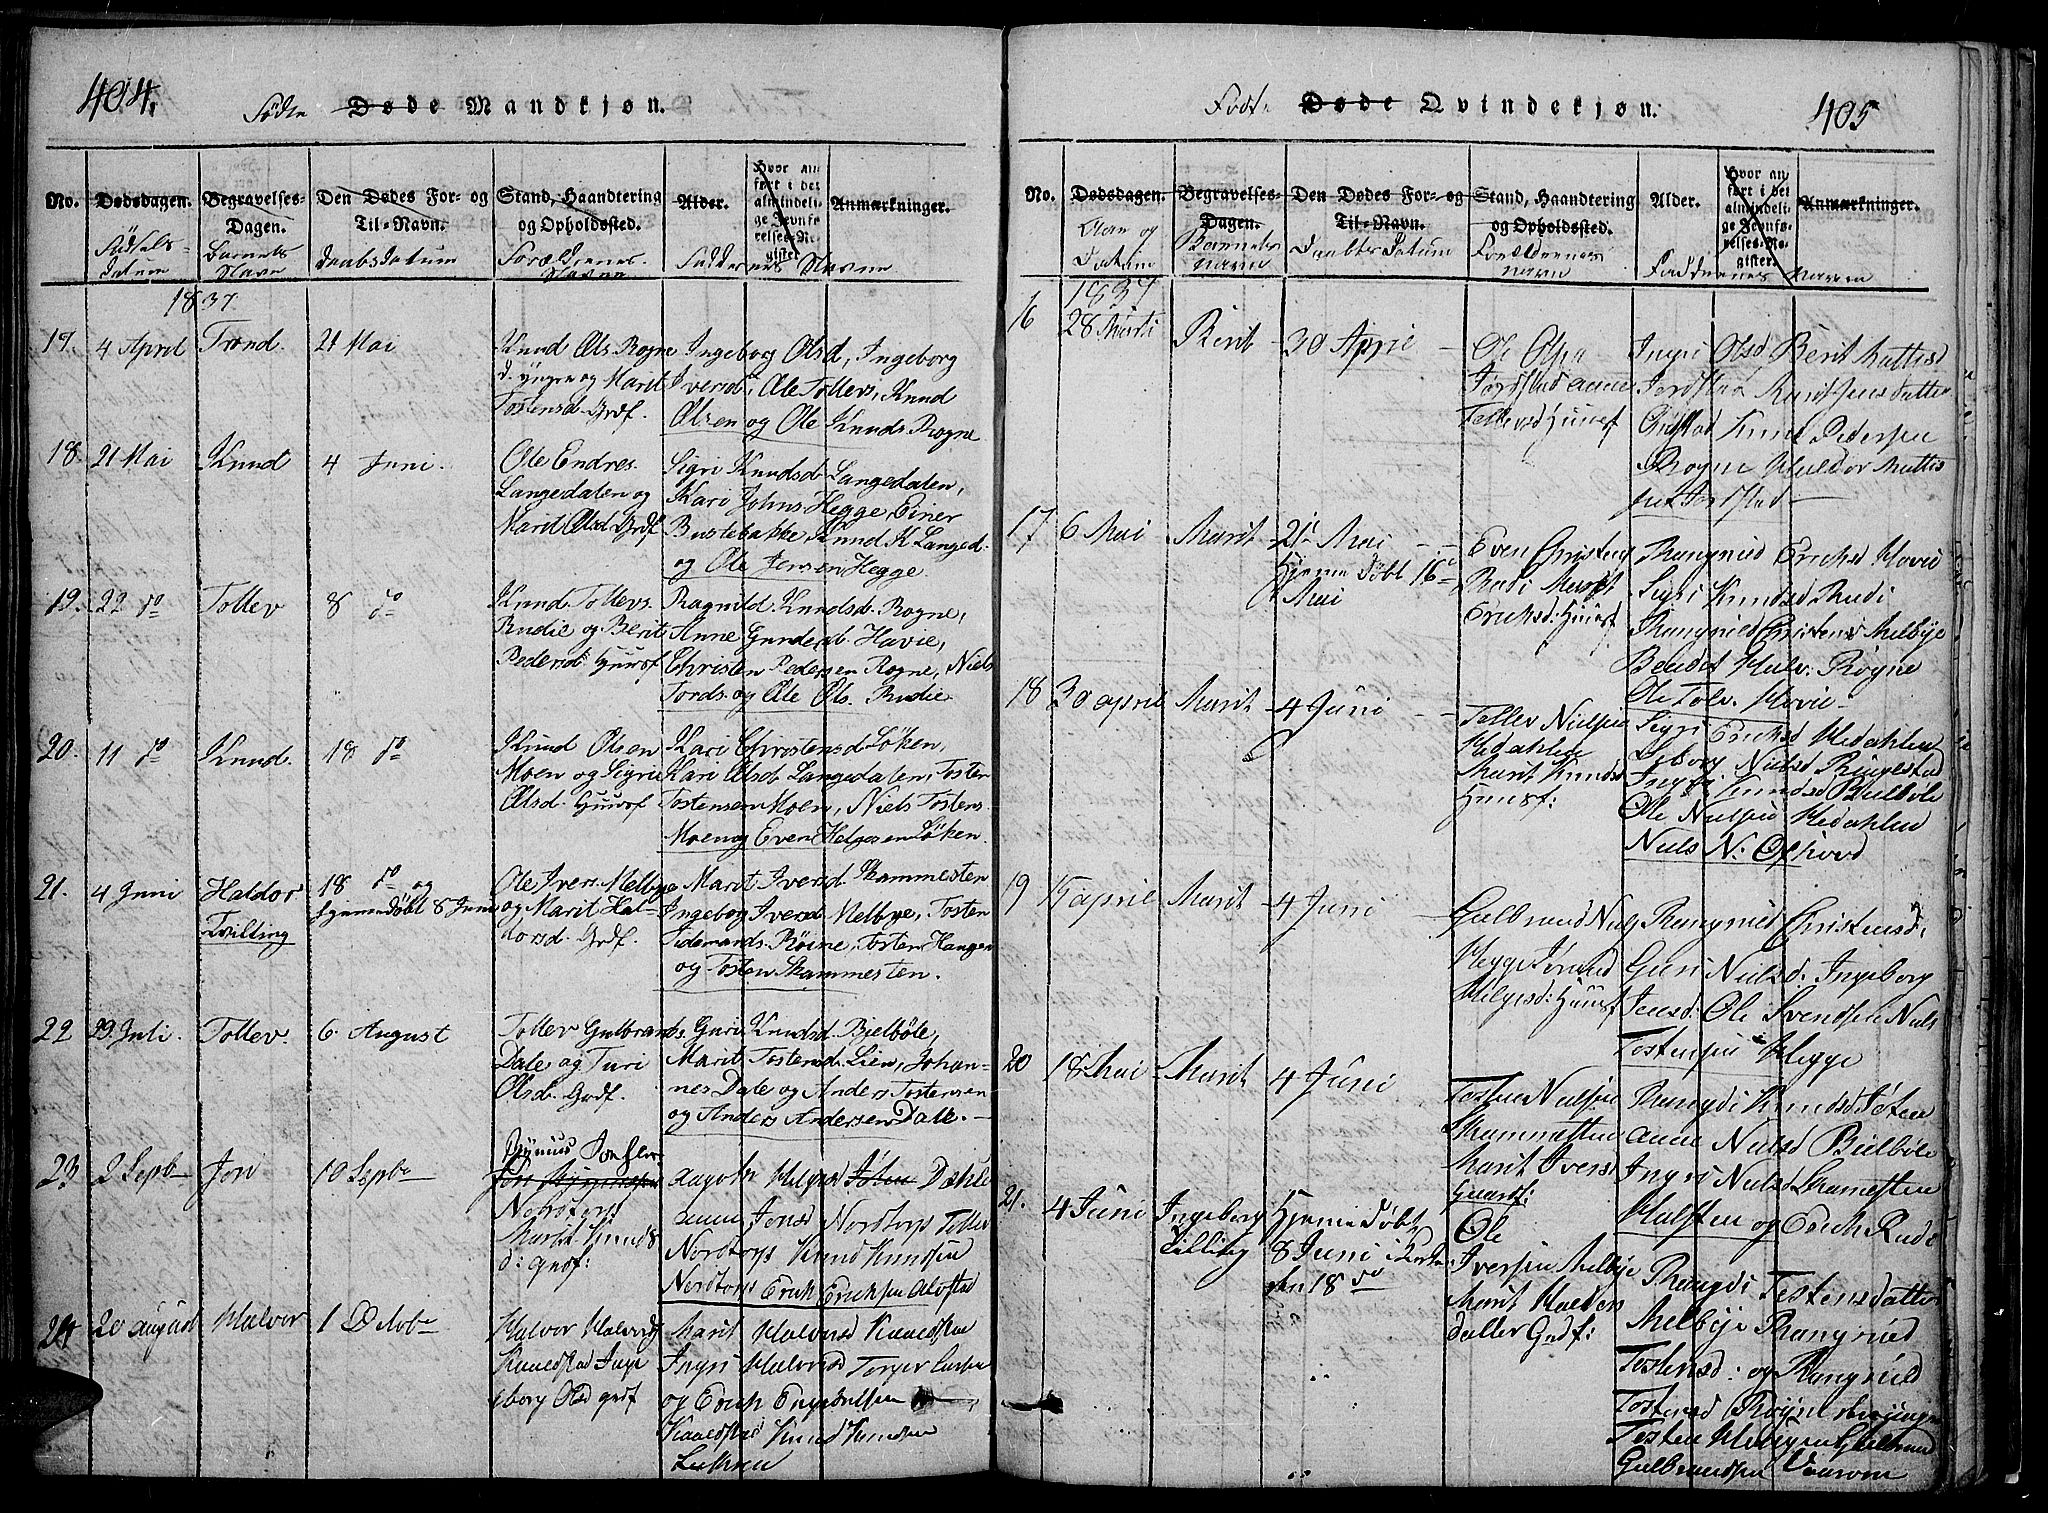 404.
Födte Døde Mandkjøn.
No.
Dødsdagen.
Födsels-
datum
Begravelses-
Dagen.
Barnets
Navn
Den Dødes For- og
Til-Navn.
Daabsdatum
Stand, Haandtering
og Opholdssted.
Forældrenes
Navne
Alder.
Hvor an
ført i det
almindeli-
ge Jevnfø-
relses-Re-
gister
Anmærkninger.
Faddernes Navne
1837.
17. 4 April Trond. 21 Mai
Knud Ols. Rogne
d. yngre og Marit
Tostensd. Grdf.
Ingeborg Olsd, Ingeborg
Iversd, Ole Tollevs, Knud
Olsen og Ole Knuds Rogne
18. 21 Mai Knud 4 Juni.
Ole Endres.
Langedalen og
Marit Olsd Grdf
Sigri Knudsd. Langedalen,
Kari Johns Hegge, Einer
Bustebakke, Knud K Langed.
og Ole Jensen Hegge.
19. 22 do Tollev 8 do
Knud Tollevs.
Rudie og Berit
Pedersd. Huusf
Ragnild Knudsd. Rogne,
Anne Gundersd. Havie,
Christen Pedersen Rogne, Niels
Tords. og Ole Ols. Rudie
20. 11 do Knud. 18 do
Knud Olsen
Moen og Sigrie
Olsd. Huusf
Kari Christensd. Löken,
Kari Olsd. Langedalen, Tosten
Tostensen Moen, Niels Tostens.
Moen og Even Helgesen Löken.
21. 4 Juni Haldor
Tvilling
18 do og
hjemmedöbt 8 Juni
Ole Ivers. Melbye
og Marit Hal-
dorsd. Grdf.
Marit Iversd. Skammesten
Ingebor Iversd. Melbye, Tosten
Tidemands. Röine, Tosten Haugen
og Tosten Skammesten.
22 29 Juli. Tollev. 6 August
Tollev Gulbrands.
Dale og Turi
Olsd. Grdf.
Guri Knudsd. Bielböle,
Marit Tostensd. Lien, Johan-
nes Dale og Anders Tostensen
og Anders Andersen Dale.
23 2 Sepb Jon 10 Sepbr
Nordtorp
Marit Knuds
d: grdf:
Aagoth Helgesd Döhle
Anne Jonsd Nordtorp Tollev
Nordtorp Knud Knudsen
Nordtorp Erich Erichsen Alvstad
24 20 august Halvor 1 Octobr
Halvor Halvords
Inge
borg Olsd grdf
Marit Halvorsd
Ingri Halvorsd Torger
og Erich
Knud Knudsen
405
Födte Døde Qvindekjøn.
No.
Dødsdagen.
Aar og
Datum
Begravelses-
Dagen.
Barnets
navn
Den Dødes For- og
Til-Navn.
Daabs Datum
Stand, Haandtering
og Opholdssted.
Forældrenes
navn
Alder.
Hvor an
ført i det
almindeli-
ge Jevnfø-
relses-Re-
gister.
Anmærkninger.
Faddernes navne
1837
16 28 Marti Berit 30 April
Ole Olsen
Jordstad Anne
Tollevsd Huusf
Ingri Olsd Berit Mattisd
Jordstad Marit Jensdatter
Knud Pedersen
Rogne Haldor Mattis
17 6 Mai Marit 21 Mai
Hjemme Döbt 16
Mai
Even Christens
Rudi Marit
Erichsd: Huusf
Rangnild Erichsd Havie
Sigri Knudsd Rudi
Rangnild Christensd Melbye
Bendet Halv. Rogne
Ole Tolv. Havie
18 30 april Marit 4 Juni
Tollev Nielsen
Hedahlen
Marit Knuds
Huusf:
Sigri Erichsd Hedahlen
Siborg Nielsd Ringestad
Ingri Knudsd Bielböle
Ole Nielsen Hedahlen
Niels N:
19 15 april Marit 4 Juni
Gulbrand Niels
Hegge Jörand
Helgesd: Huusf
Rangnild Christensd:
Guri Nielsd: Ingeborg
Jensd: Ole Svendsen Niels
Tostensen Hegge
20 18 Mai Marit 4 Juni
Tosten Nielsen
Skammesten
Marit Ivers
Gaardf:
Rangdi Knudsd
Anne Nielsd Bielböle
Ingri Nielsd Skamesten
Halsten og Erich Rudi
21. 4 Juni Ingeborg
Tvilling
Hjemme Döbt
8 Juni i Kirken
den 18 do
Ole
Iversen Melbye
Marit Haldors
datter Grdf:
Rangdi Tostensdatter
Melbye Rangnild
Tostensd: og Rangnild
Tostensd Röine
Tosten Helgesen
Gulbrandsen